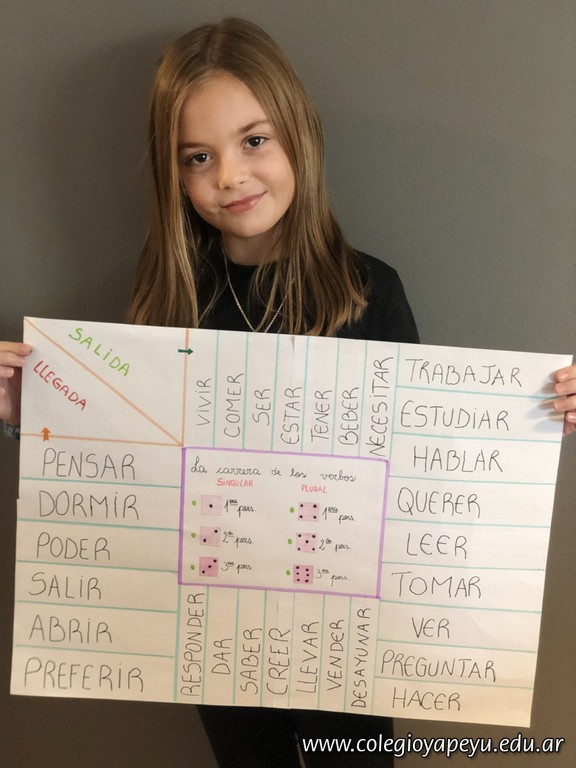 SALIDA
LLEGADA
VIVIR
COMER
SER
ESTAR
TENER
BEBER
NECESITAR
TRABAJAR
ESTUDIAR
HABLAR
QUERER
LEER
TOMAR
VER
PREGUNTAR
HACER
DESAYUNAR
VENDER
LLEVAR
CREER
SABER
DAR
RESPONDER
PREFERIR
ABRIR
SALIR
PODER
DORMIR
PENSAR
La carrera de los verbos
SINGULAR PLURAL
1era pers. 1era pers.
2da pers. 2da pers.
3era pers. 3era pers.
www.colegioyapeyu.edu.ar